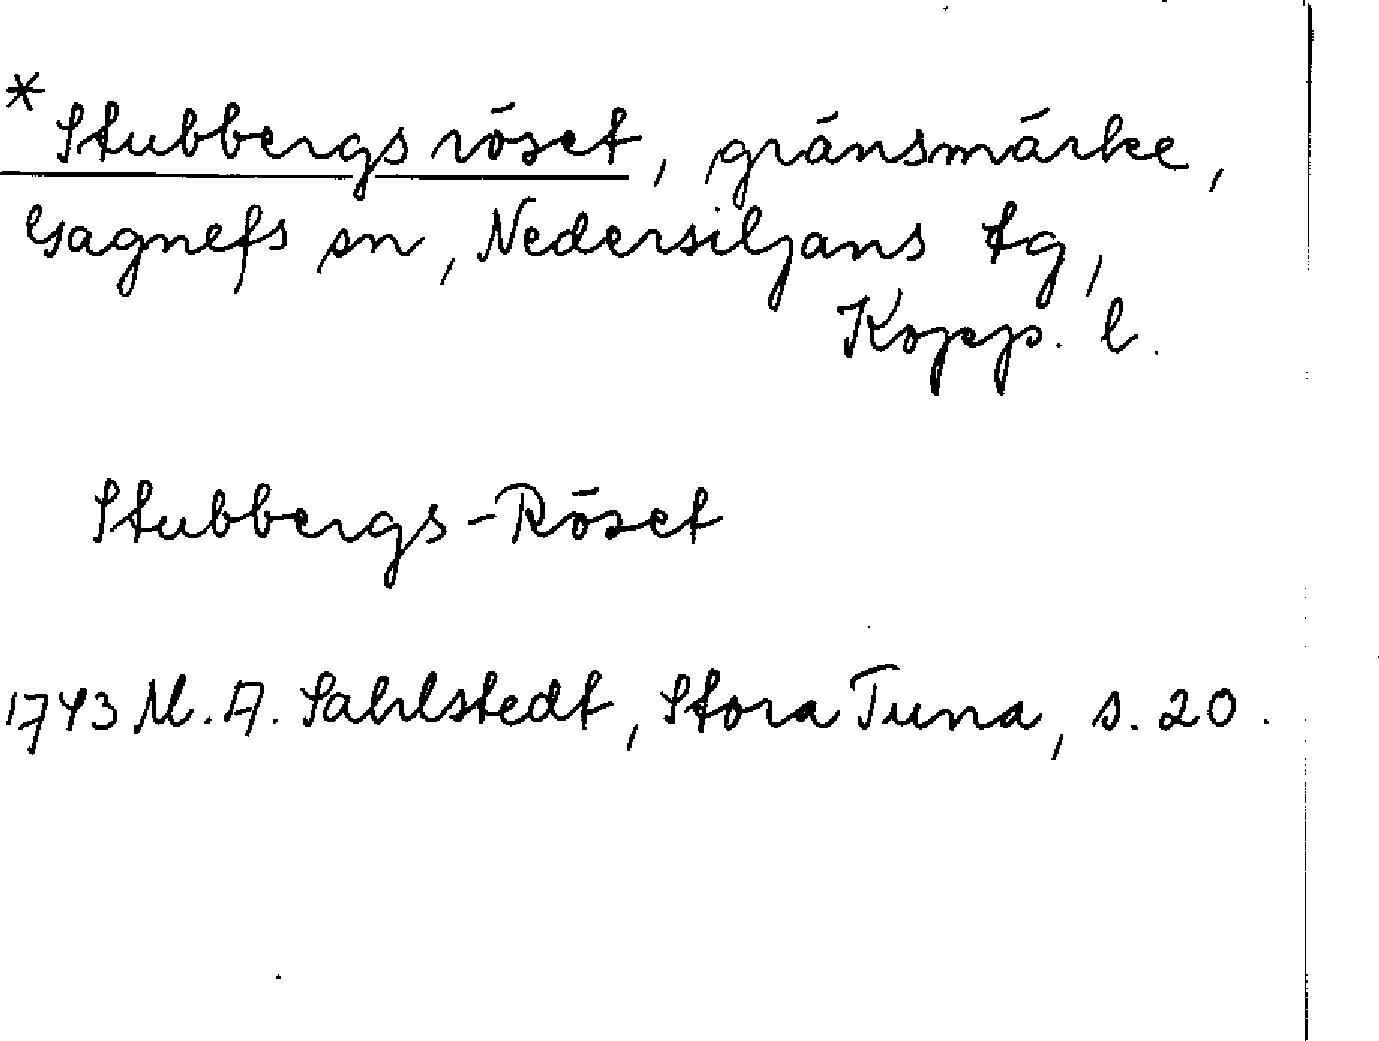 * Stubbergsröset, gränsmärke,
Gagnefs sn, Nedersiljans tg,
Kopp. l.
Stubbergs-Röset
1743 M. A. Sahlstedt, Stora Tuna, s. 20.